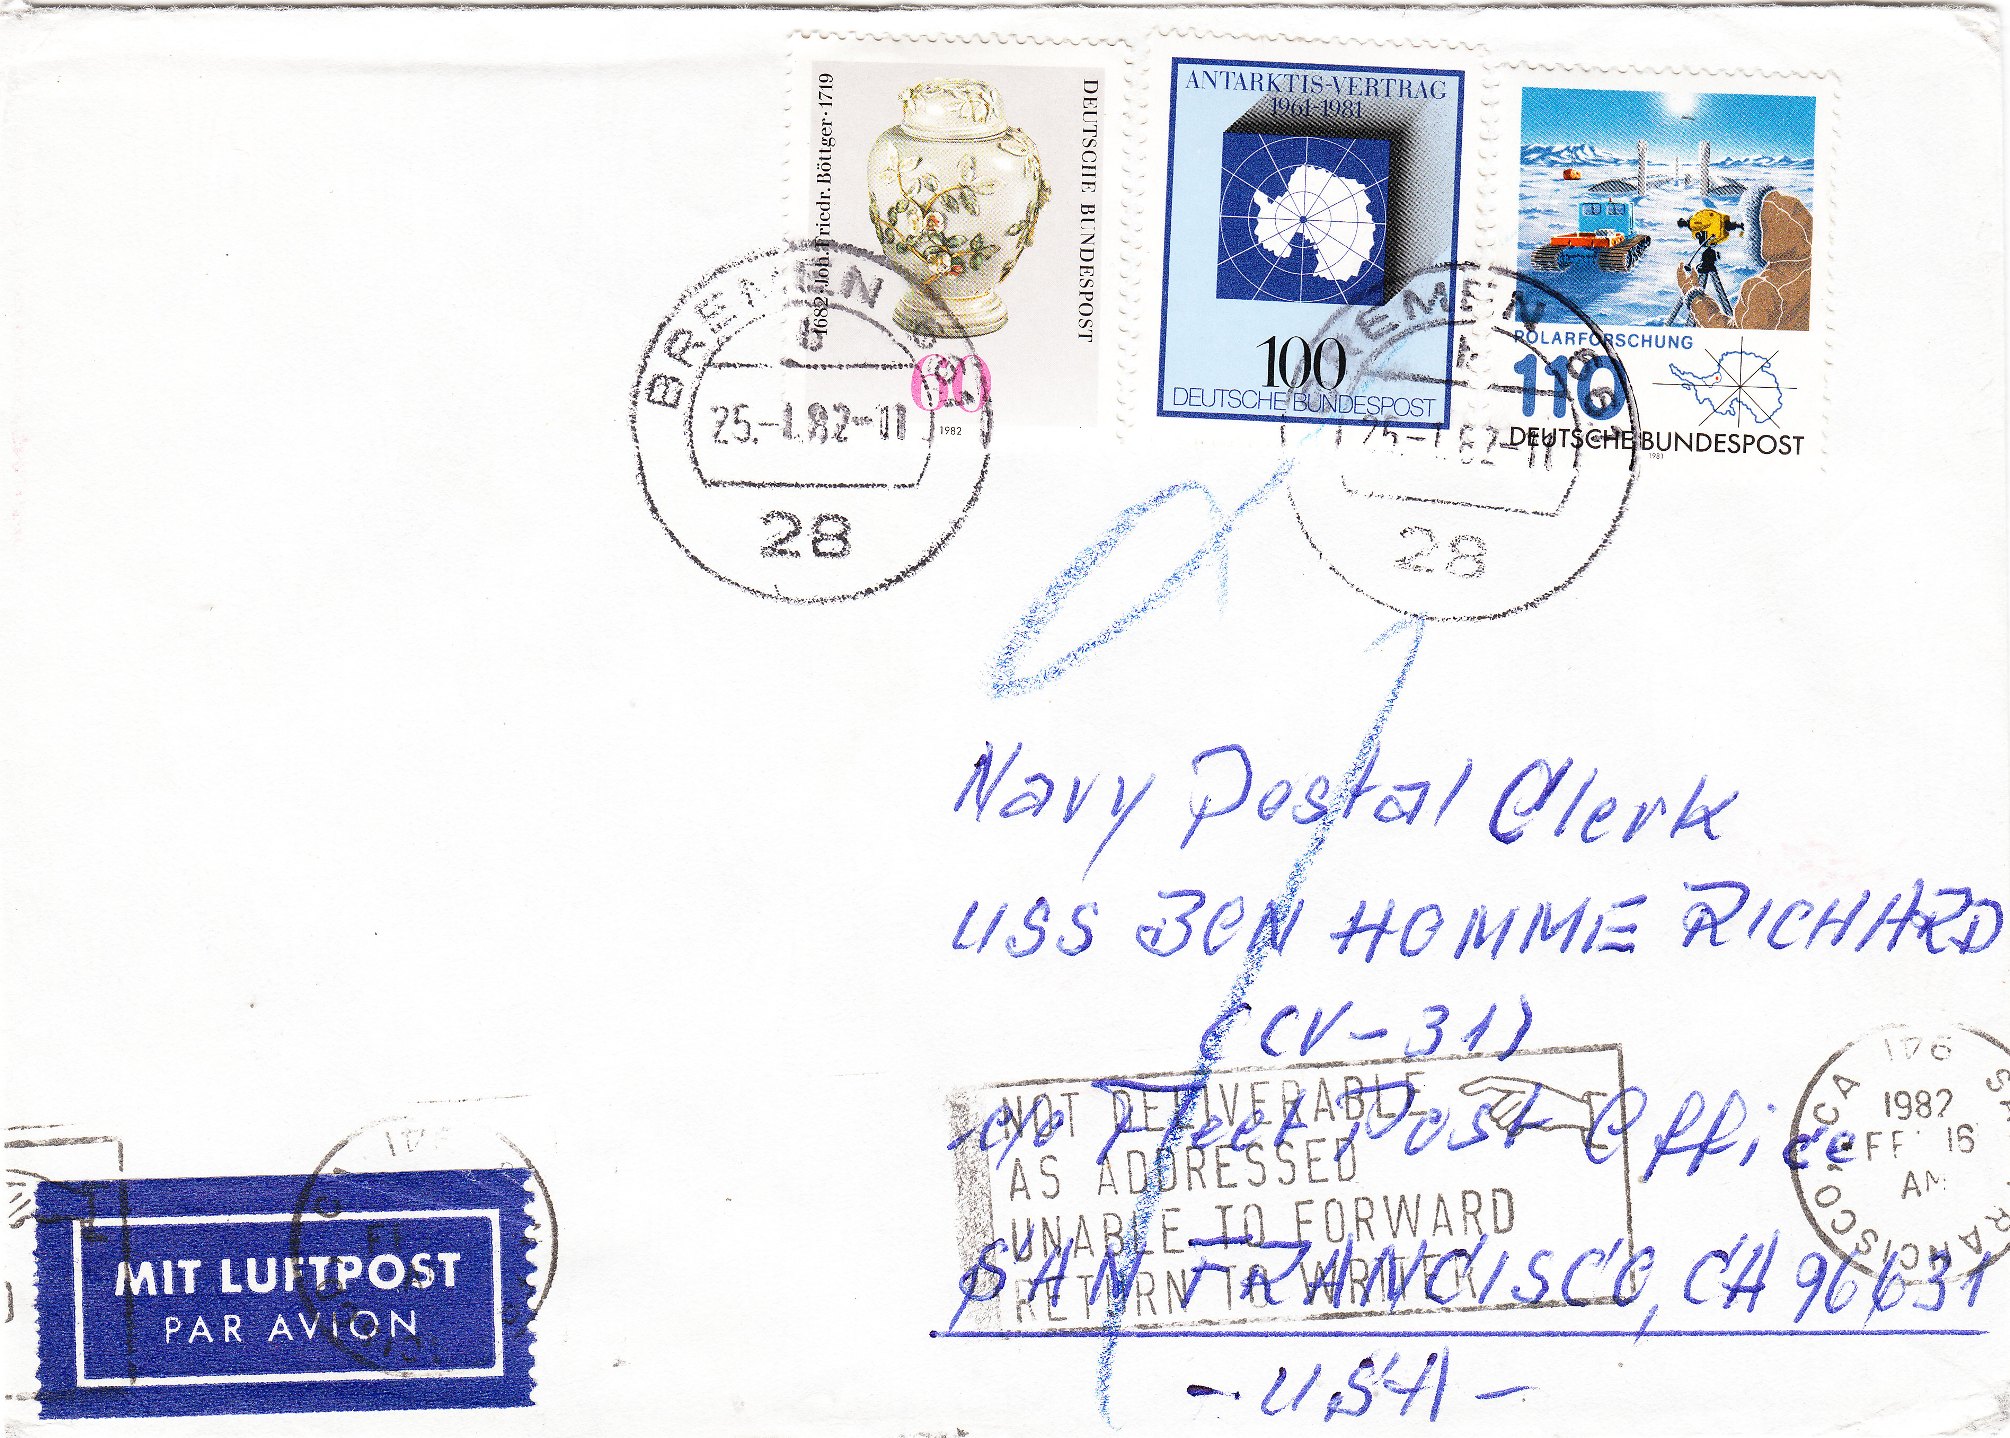 1682 Joh. Friedr. Böttger · 1719
DEUTSCHE BUNDESPOST
60
1982
ANTARKTIS-VERTRAG
1961-1981
100
DEUTSCHE BUNDESPOST
POLARFORSCHUNG
110
DEUTSCHE BUNDESPOST
1981
BREMEN
25.-1.82-11
28
BREMEN
25.-1.82-11
28
Navy Postal Clerk
USS BON HOMME RICHARD
(CV-31)
-c/o Fleet Post Office
SAN FRANCISCO, CA 96631
- USA -
NOT DELIVERABLE
AS ADDRESSED
UNABLE TO FORWARD
RETURN TO WRITER
SAN FRANCISCO, CA
941
1982
16
AM
MIT LUFTPOST
PAR AVION